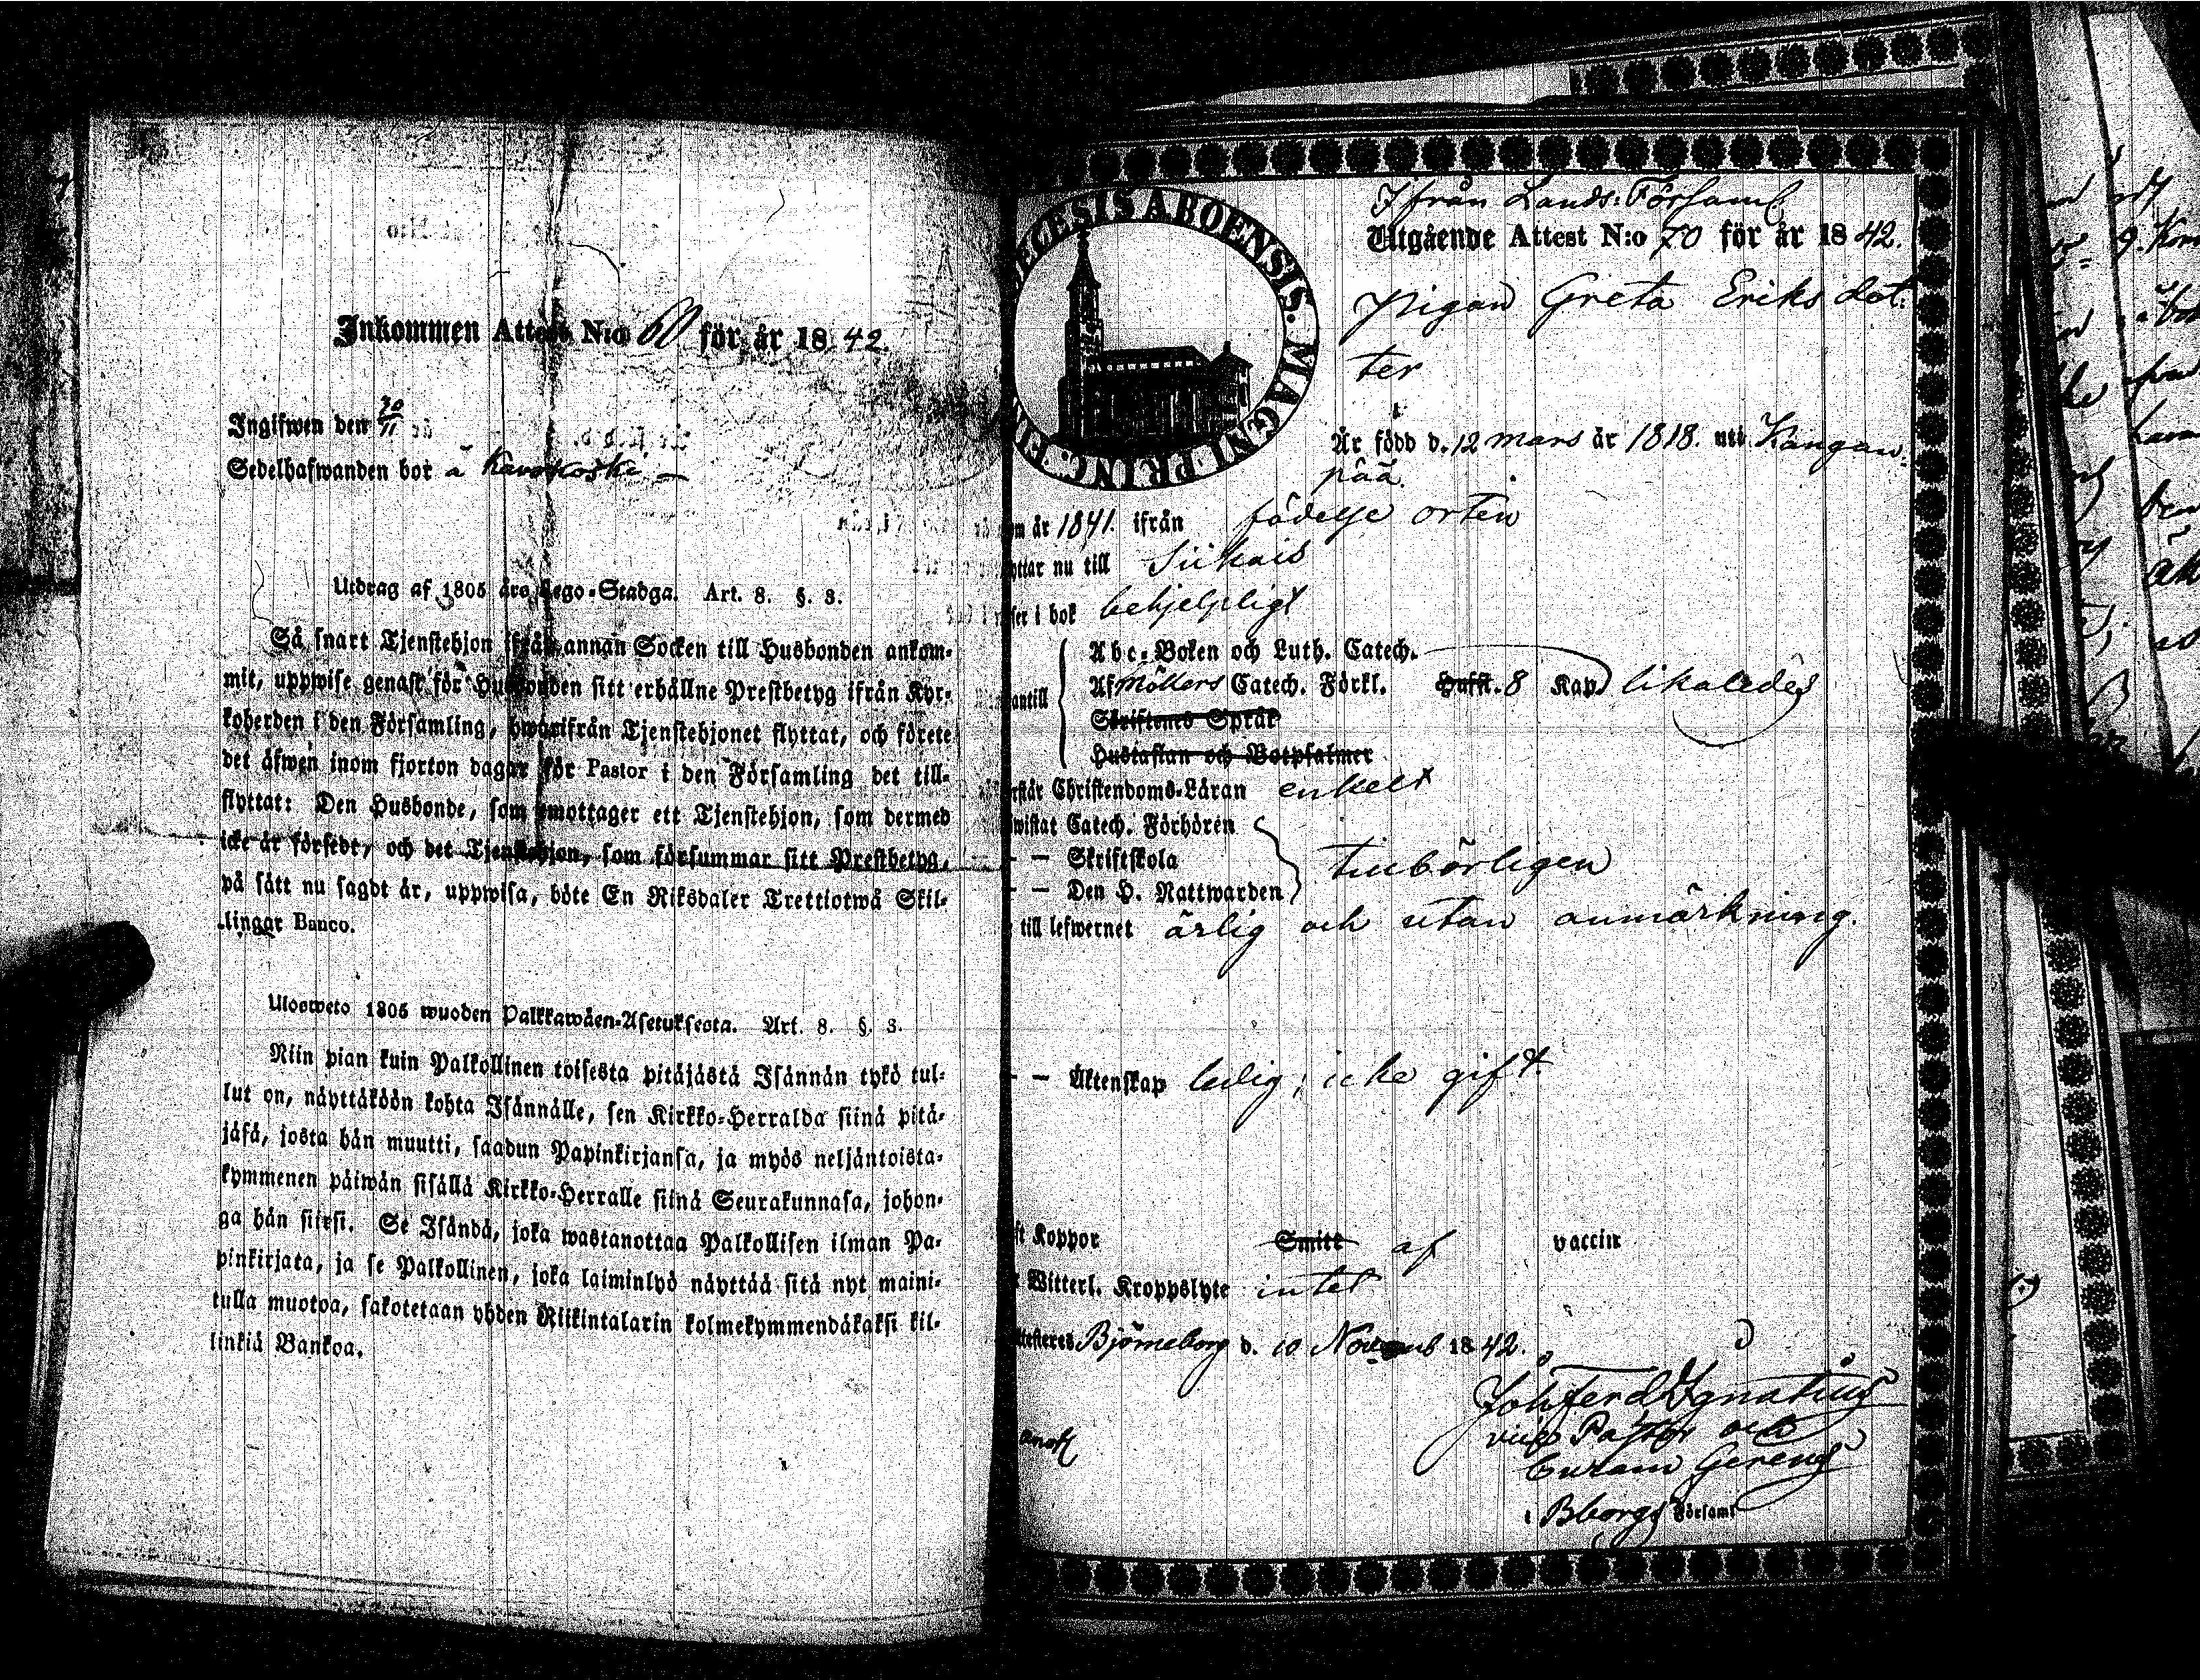 Inkommen Attest N:o 60 för år 1842.
Ingifwen den 30/11
Sedelhafwanden bor å
Utdrag af 1805 års Lego-Stadga. Art. 8. §. 3.
Så snart Tjenstehjon ifrån annan Socken till Husbonden ankom-
mit, uppwise genast för Husbonden sitt erhållne Prestbetyg ifrån Kyr-
koherden i den Församling, hwarifrån Tjenstehjonet flyttat, och förete
det äfwen inom fjorton dagar för Pastor i den Församling det till-
flyttat: Den Husbonde, som emottager ett Tjenstehjon, som dermed
icke är försedt, och det Tjenstehjon, som försummar sitt Prestbetyg,
på sätt nu sagdt är, uppwisa, böte En Riksdaler Trettiotwå Skil-
lingar Banco.
Ulosweto 1805 wuoden Palkkawäen-Asetuksesta. Art. 8. §. 3.
Niin pian kuin Palkollinen toisesta pitäjästä Isännän tykö tul-
lut on, näyttäköön kohta Isännälle, sen Kirkko-Herralda siinä pitä-
jäsä, josta hän muutti, saadun Papinkirjansa, ja myös neljäntoista-
kymmenen päiwän sisällä Kirkko-Herralle siinä Seurakunnasa, johon-
ga hän siirsi. Se Isändä, joka wastanottaa Palkollisen ilman Pa-
pinkirjata, ja se Palkollinen, joka laiminlyö näyttää sitä nyt maini-
tulla muotoa, sakotetaan yhden Riikintalarin kolmekymmendäkaksi kil-
linkiä Bankoa.
ECESIS ABOENSIS. MAGNI PRINC. FIN
Ifrån Lands: Församl
Utgående Attest N:o 70 för år 1842.
Pigan Greta Eriks dot:
ter
Är född d. 12 mars år 1818. uti Kangan-
pää.
om år 1841. ifrån födelse orten
yttar nu till Siikais
ser i bok behjelpligt
Abc-Boken och Luth. Catech.
antill Af Möllers Catech. Förkl. Hufst. 8 Kap. likaledes
Skriftenes Språk
Hustaflan och Botpsalmer
rstår Christendoms-Läran enkelt
wistat Catech. Förhören
— — Skriftskola tillbörligen
— — Den H. Nattwarden
till lefwernet ärlig och utan anmärkning.
— — Äktenskap ledig; icke gift.
ft Koppor Smitt af vaccin
Witterl. Kroppslyte intet
ttesteres Björneborg d. 10 Novemb 1842.
Joh Ferd Ignatius
vice Pastor och
Curam Gerens
i Bborgs Församl